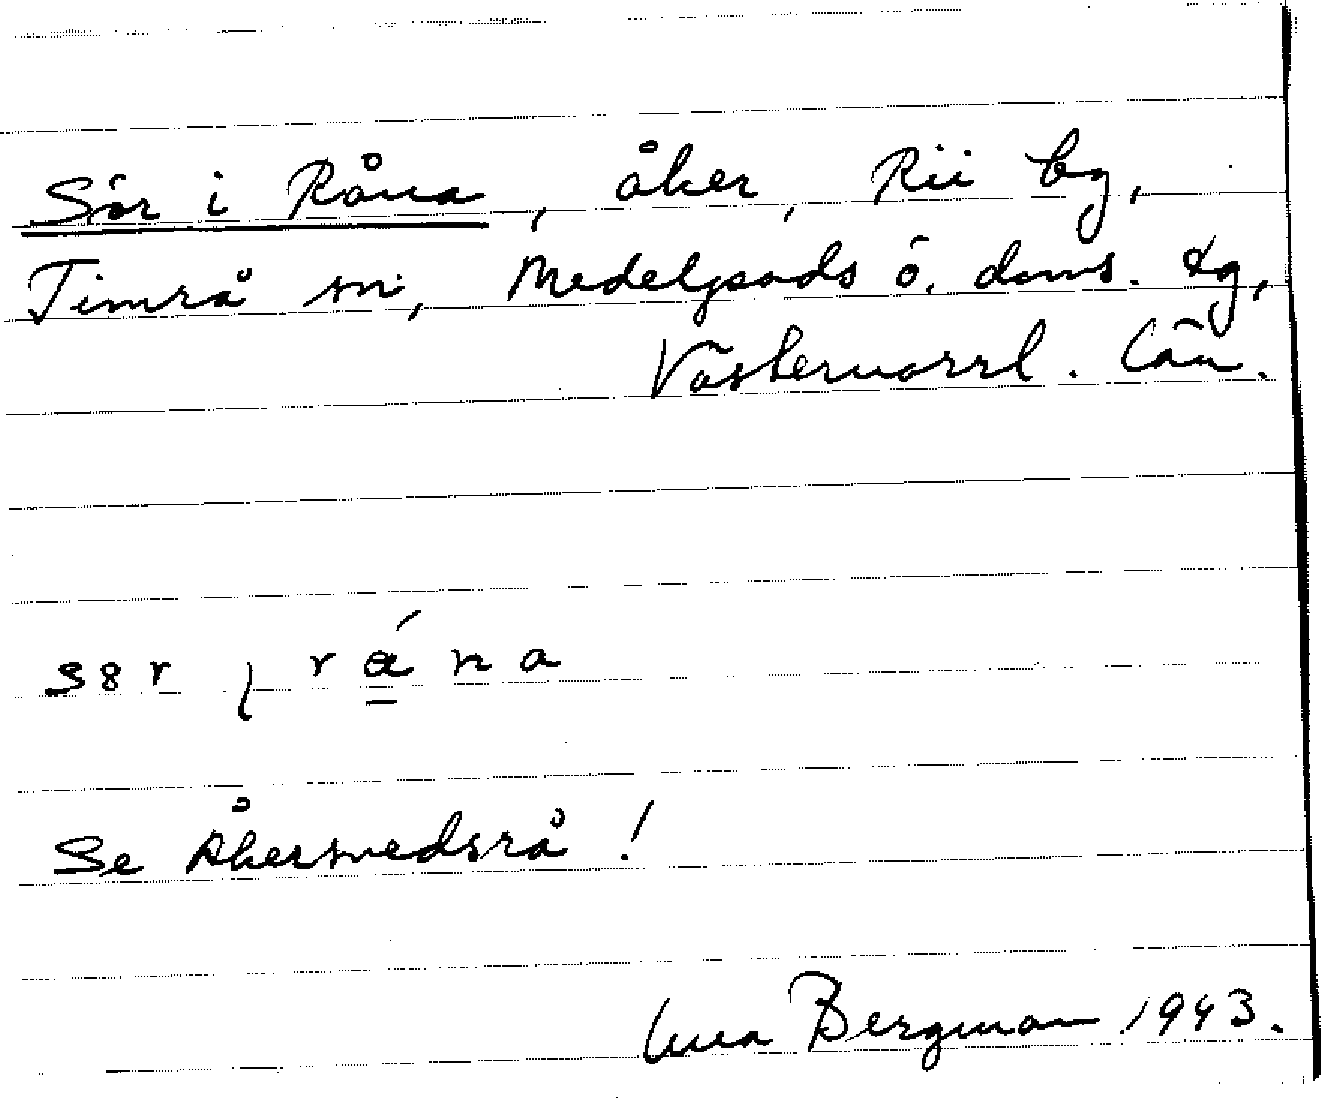 Sör i Råna, åker, Rii by,
Timrå sn, Medelpads ö. doms. tg,
Västernorrl. län.
s8r ɩ rána
Se Åkersvedsrå!
Bergman 1943.